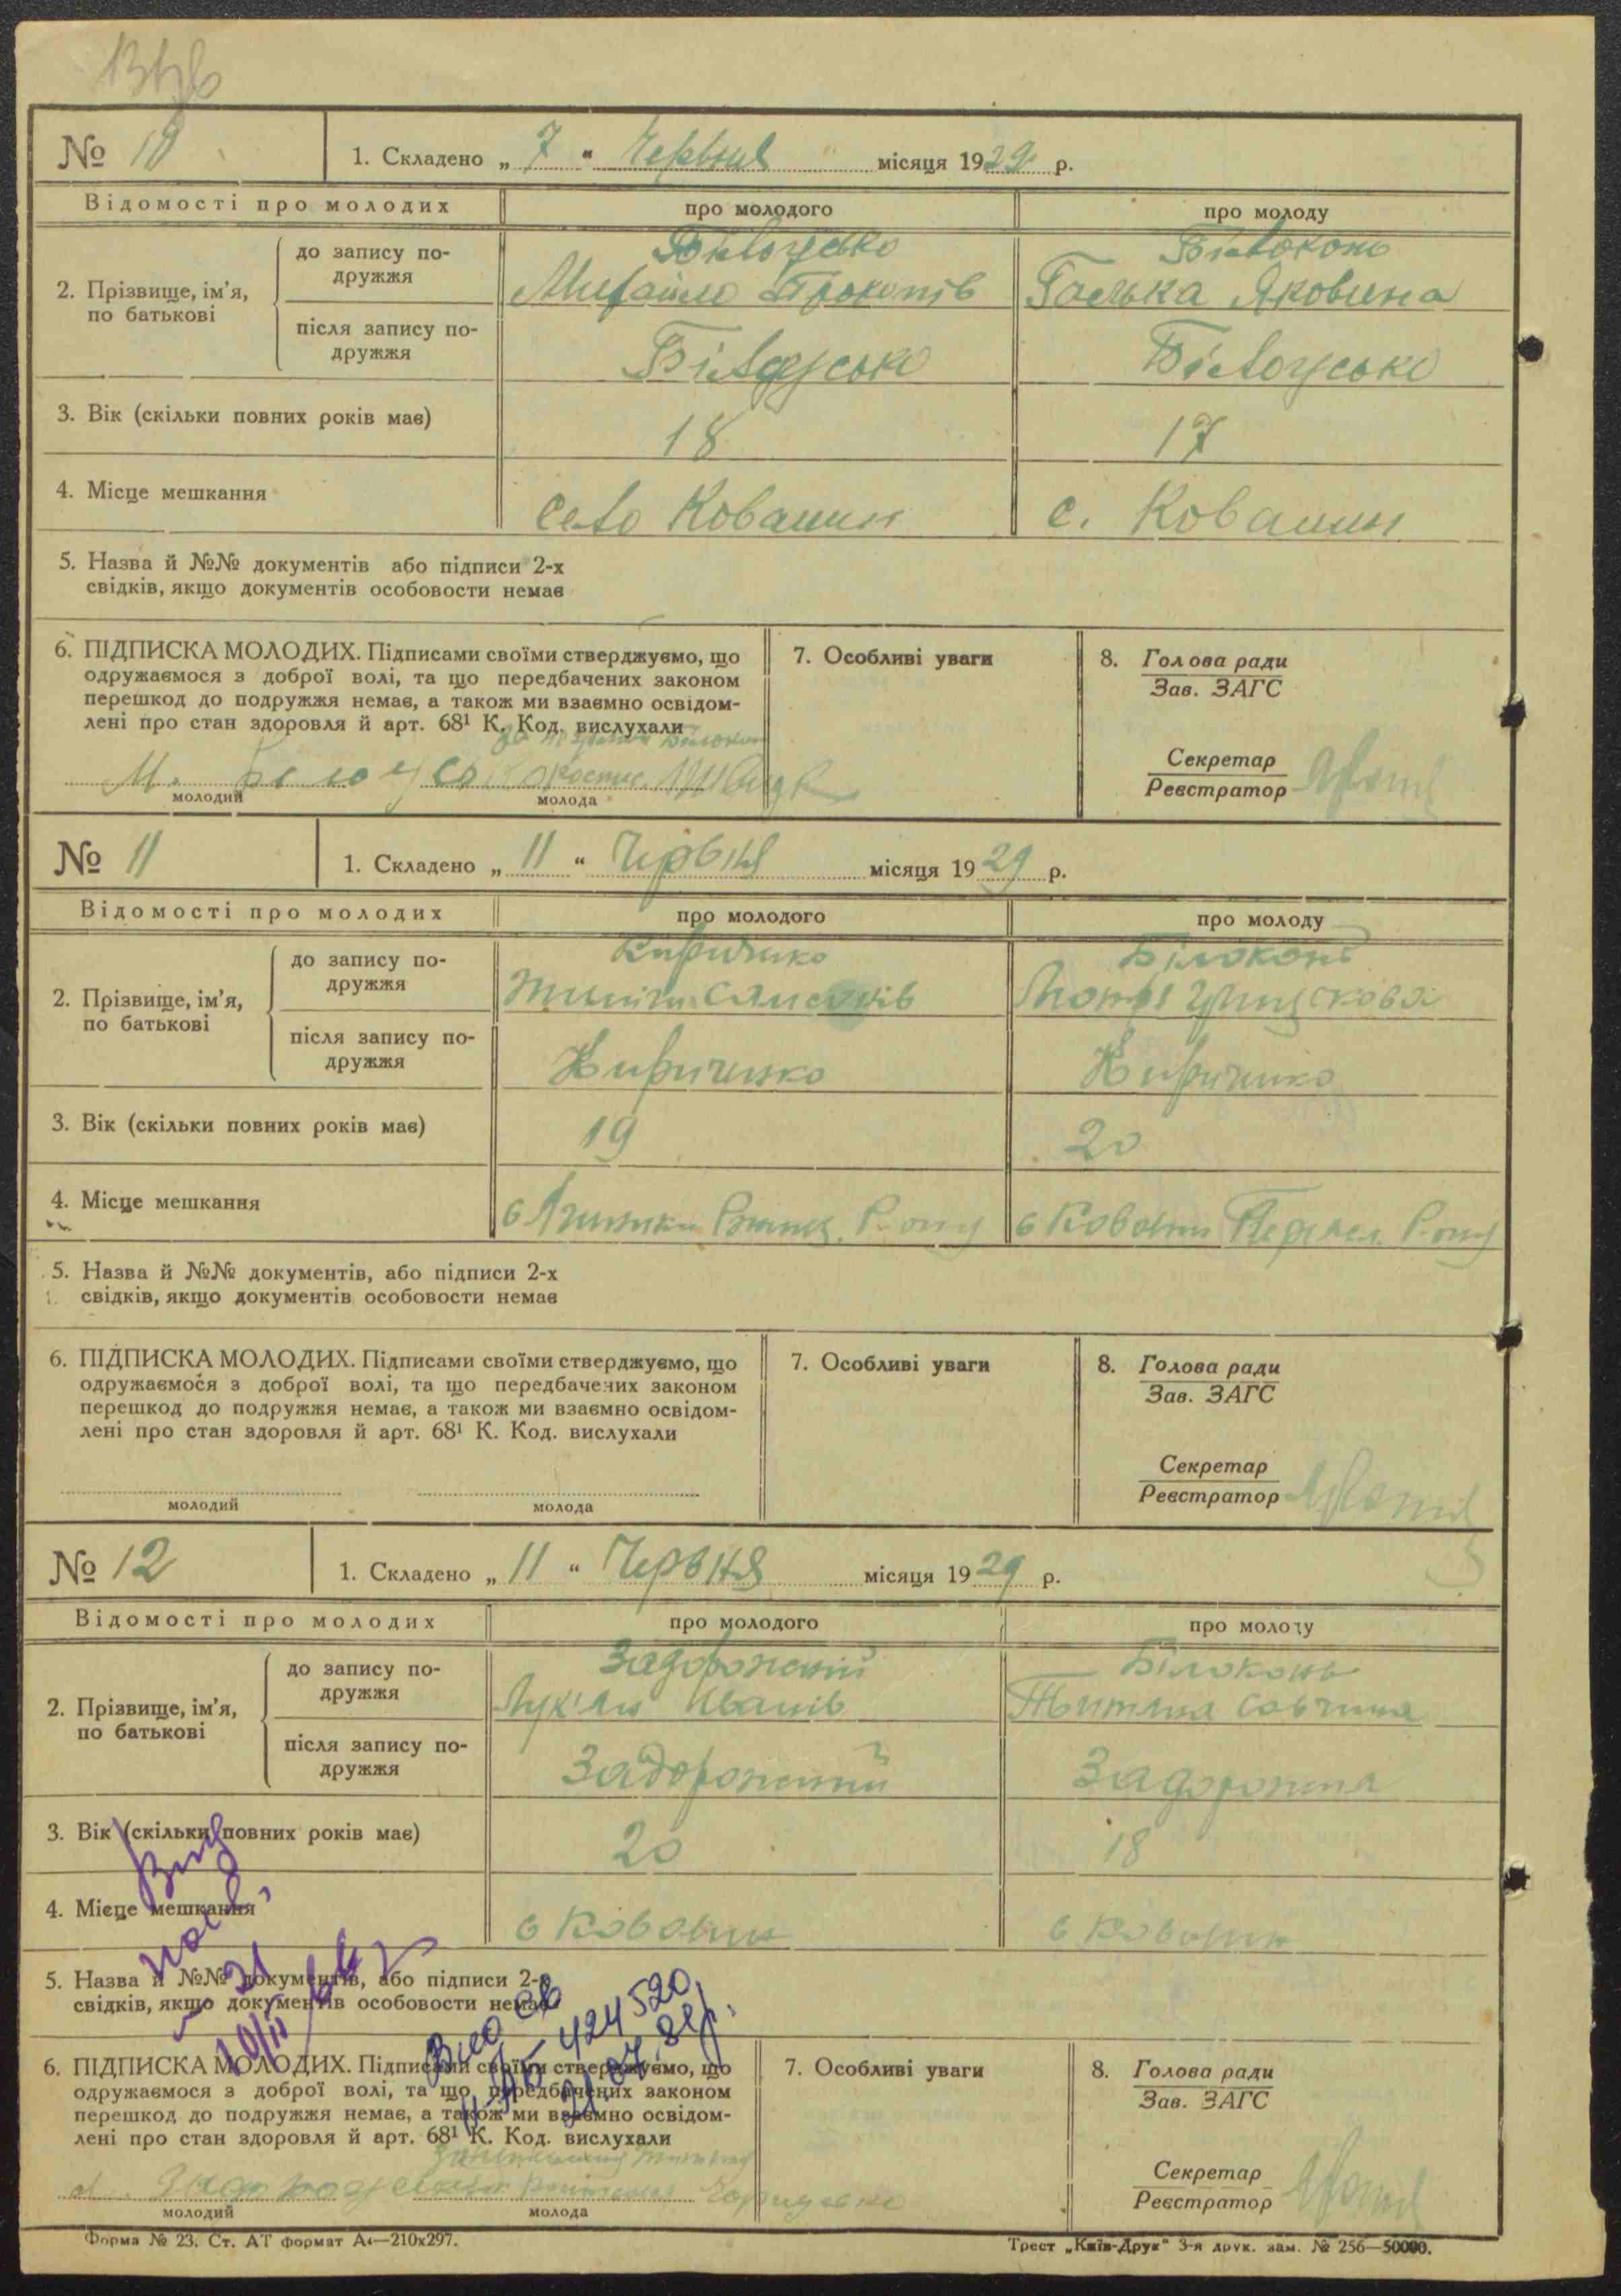 № 10
1. Складено „ 7 “ Червня місяця 1929 р.
Відомості про молодих
про молодого
про молоду
2. Прізвище, ім’я,
по батькові
до запису по-
дружжя
Білоусько
Михайло Прокопів
Білоконь
Галька Яковина
після запису по-
дружжя
Білоусько
Білоусько
3. Вік (скільки повних років має)
18
17
4. Місце мешкання
село Ковалин
с. Ковалин
5. Назва й №№ документів або підписи 2-х
свідків, якщо документів особовости немає
6. ПІДПИСКА МОЛОДИХ. Підписами своїми стверджуємо, що
одружаємося з доброї волі, та що передбачених законом
перешкод до подружжя немає, а також ми взаємно освідом-
лені про стан здоровля й арт. 68¹ К. Код. вислухали
молодий
молода
7. Особливі уваги
8. Голова ради
Зав. ЗАГС
Секретар
Реєстратор
№ 11
1. Складено „ 11 “ Червня місяця 1929 р.
Відомості про молодих
про молодого
про молоду
2. Прізвище, ім’я,
по батькові
до запису по-
дружжя
Кириченко
Білоконь
після запису по-
дружжя
Кириченко
Кириченко
3. Вік (скільки повних років має)
19
20
4. Місце мешкання
Р-ону
с Ковалин Переясл. Р-ону
5. Назва й №№ документів, або підписи 2-х
свідків, якщо документів особовости немає
6. ПІДПИСКА МОЛОДИХ. Підписами своїми стверджуємо, що
одружаємося з доброї волі, та що передбачених законом
перешкод до подружжя немає, а також ми взаємно освідом-
лені про стан здоровля й арт. 68¹ К. Код. вислухали
молодий
молода
7. Особливі уваги
8. Голова ради
Зав. ЗАГС
Секретар
Реєстратор
№ 12
1. Складено „ 11 “ Червня місяця 1929 р.
Відомості про молодих
про молодого
про молоду
2. Прізвище, ім’я,
по батькові
до запису по-
дружжя
Задорожний
Лук'ян Іванів
Білоконь
Титяна Савчина
після запису по-
дружжя
Задорожний
Задорожня
3. Вік (скільки повних років має)
20
18
4. Місце мешкання
с Ковалин
с Ковалин
5. Назва й №№ документів, або підписи 2-х
свідків, якщо документів особовости немає
424520
6. ПІДПИСКА МОЛОДИХ. Підписами своїми стверджуємо, що
одружаємося з доброї волі, та що передбачених законом
перешкод до подружжя немає, а також ми взаємно освідом-
лені про стан здоровля й арт. 68¹ К. Код. вислухали
молодий
молода
7. Особливі уваги
8. Голова ради
Зав. ЗАГС
Секретар
Реєстратор
Форма № 23. Ст. АТ формат А4—210х297.
Трест „Київ-Друк“ 3-я друк. зам. № 256—50000.